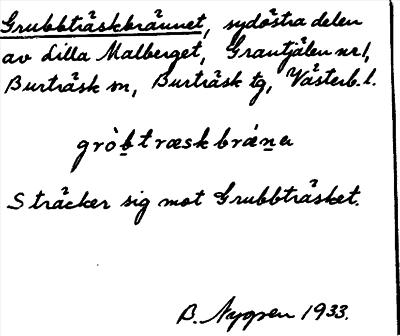 Grubbträskbrännet, sydöstra delen
av Lilla Malberget, Grantjälen nr 1,
Burträsk sn, Burträsk tg, Västerb. l.
grò̀b̲træskbrán̲a
Sträcker sig mot Grubbträsket.
B. Nygren 1933.